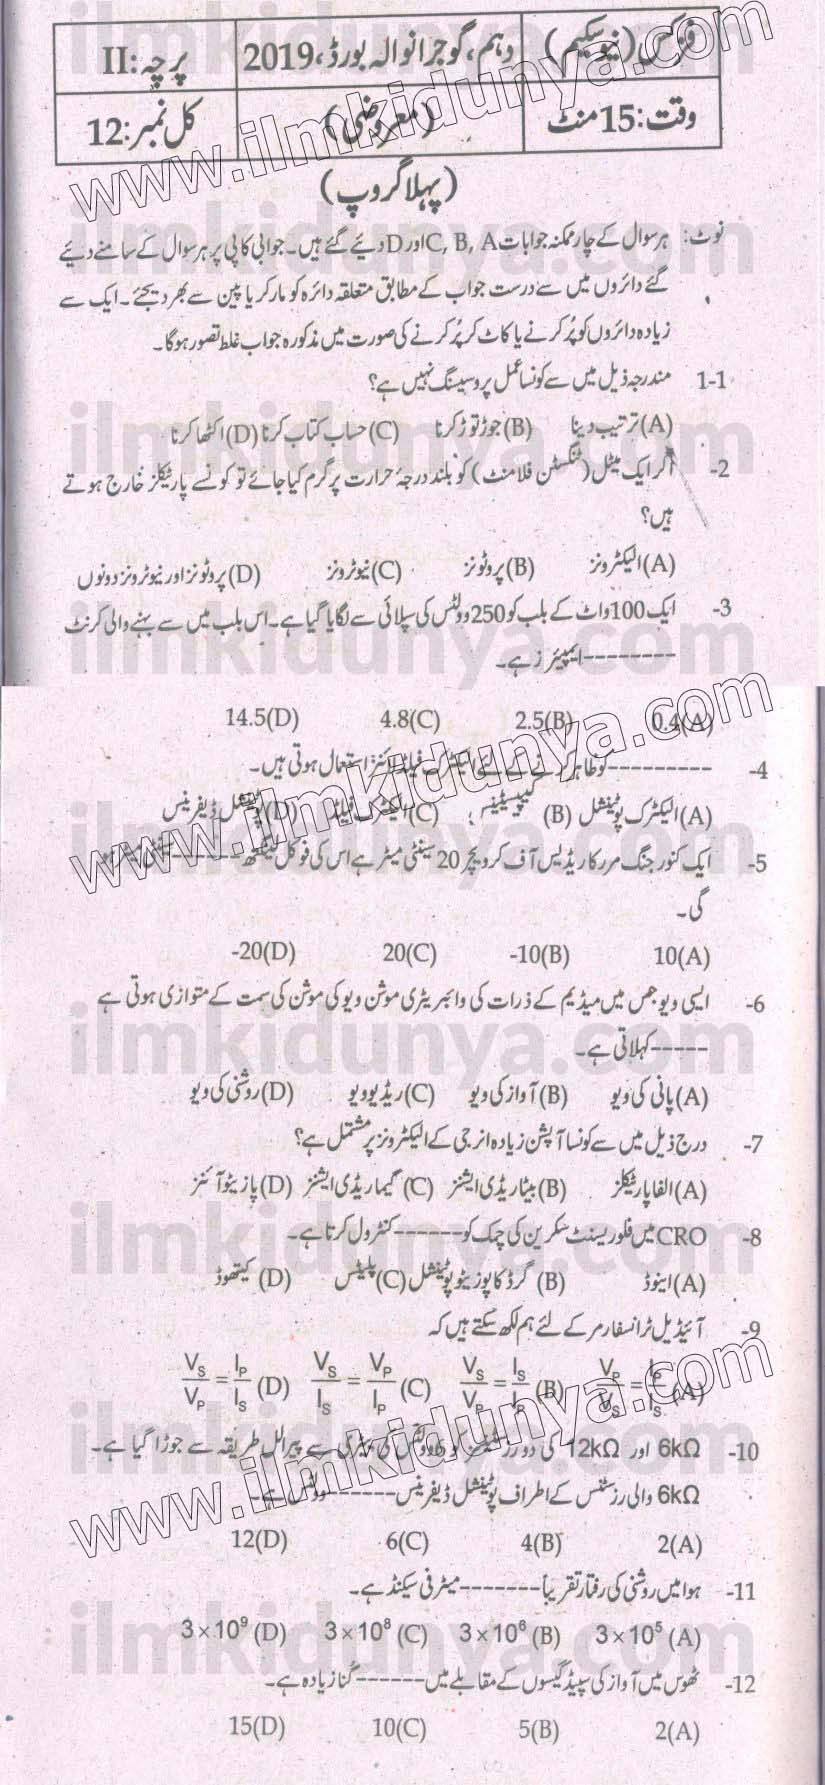 فزکس (نیو سکیم) دہم، گوجرانوالہ بورڈ، 2019 پرچہ: II
وقت: 15 منٹ (معروضی) کل نمبر: 12
(پہلا گروپ)
نوٹ: ہر سوال کے چار ممکنہ جوابات C, B, A اور D دیئے گئے ہیں۔ جوابی کاپی پر ہر سوال کے سامنے دیئے
گئے دائروں میں سے درست جواب کے مطابق متعلقہ دائرہ کو مارکر یا پین سے بھر دیجئے۔ ایک سے
زیادہ دائروں کو پُر کرنے یا کاٹ کر پُر کرنے کی صورت میں مذکورہ جواب غلط تصور ہوگا۔
1-1 مندرجہ ذیل میں سے کونسا عمل پروسیسنگ نہیں ہے؟
(A) ترتیب دینا (B) جوڑ توڑ کرنا (C) حساب کتاب کرنا (D) اکٹھا کرنا
2- اگر ایک میٹل (ٹنگسٹن فلامنٹ) کو بلند درجۂ حرارت پر گرم کیا جائے تو کونسے پارٹیکلز خارج ہوتے
ہیں؟
(A) الیکٹرونز (B) پروٹونز (C) نیوٹرونز (D) پروٹونز اور نیوٹرونز دونوں
3- ایک 100 واٹ کے بلب کو 250 وولٹس کی سپلائی سے لگایا گیا ہے۔ اس بلب میں سے بہنے والی کرنٹ
--------- ایمپیئرز ہے۔
0.4(A) 2.5(B) 4.8(C) 14.5(D)
4- --------- کو ظاہر کرنے کے لئے الیکٹرک فیلڈ لائنز استعمال ہوتی ہیں۔
(A) الیکٹرک پوٹینشل (B) کیپسیٹینس (C) الیکٹرک فیلڈ (D) پوٹینشل ڈیفرینس
5- ایک کنورجنگ مرر کا ریڈیس آف کرویچر 20 سینٹی میٹر ہے اس کی فوکل لینگتھ ------ سینٹی میٹر ہو
گی۔
10(A) -10(B) 20(C) -20(D)
6- ایسی ویو جس میں میڈیم کے ذرات کی وائبریٹری موشن ویو کی موشن کی سمت کے متوازی ہوتی ہے
----- کہلاتی ہے۔
(A) پانی کی ویو (B) آواز کی ویو (C) ریڈیو ویو (D) روشنی کی ویو
7- درج ذیل میں سے کونسا آپشن زیادہ انرجی کے الیکٹرونز پر مشتمل ہے؟
(A) الفا پارٹیکلز (B) بیٹا ریڈی ایشنز (C) گیما ریڈی ایشنز (D) پازیٹو آئنز
8- CRO میں فلوریسنٹ سکرین کی چمک کو ------ کنٹرول کرتا ہے۔
(A) اینوڈ (B) گرڈ کا پوزیٹو پوٹینشل (C) پلیٹس (D) کیتھوڈ
9- آئیڈیل ٹرانسفارمر کے لئے ہم لکھ سکتے ہیں کہ
(A) V_P/V_S = I_P/I_S (B) V_S/V_P = I_S/I_P (C) V_S/I_S = V_P/I_P (D) V_S/V_P = I_P/I_S
10- 6kΩ اور 12kΩ کی دو رزسٹنسز کو 6 وولٹس کی بیٹری سے پیرالل طریقہ سے جوڑا گیا ہے۔
6kΩ والی رزسٹنس کے اطراف پوٹینشل ڈیفرینس ------ وولٹس ہے۔
2(A) 4(B) 6(C) 12(D)
11- ہوا میں روشنی کی رفتار تقریباً ------- میٹر فی سیکنڈ ہے۔
3×10⁵ (A) 3×10⁶ (B) 3×10⁸ (C) 3×10⁹ (D)
12- ٹھوس میں آواز کی سپیڈ گیسوں کے مقابلے میں ------ گنا زیادہ ہے۔
2(A) 5(B) 10(C) 15(D)
www.ilmkidunya.com
www.ilmkidunya.com
www.ilmkidunya.com
ilmkidunya.com
ilmkidunya.com
ilmkidunya.com
ilmkidunya.com
ilmkidunya.com
ilmkidunya.com
ilmkidunya.com
ilmkidunya.com